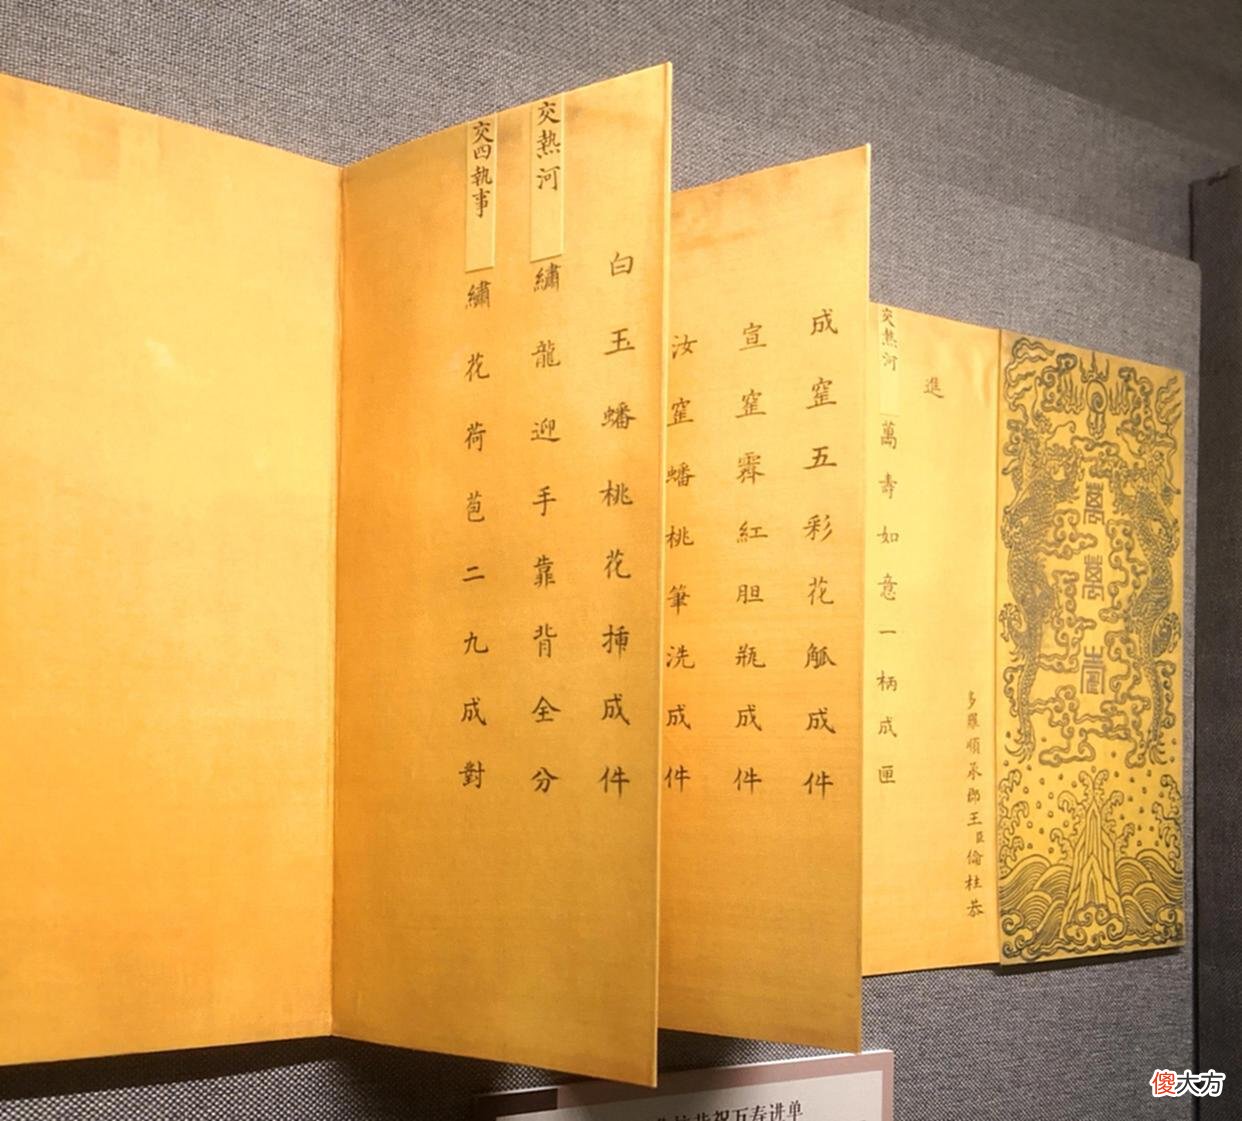 萬萬壽
多羅順承郡王臣倫柱恭
進
交熱河
萬壽如意一柄成匣
成窑五彩花觚成件
宣窑霁紅胆瓶成件
汝窑蟠桃筆洗成件
白玉蟠桃花揷成件
交熱河
繡龍迎手靠背全分
交四執事
繡花荷苞二九成對
恭祝万寿进单
傻大方